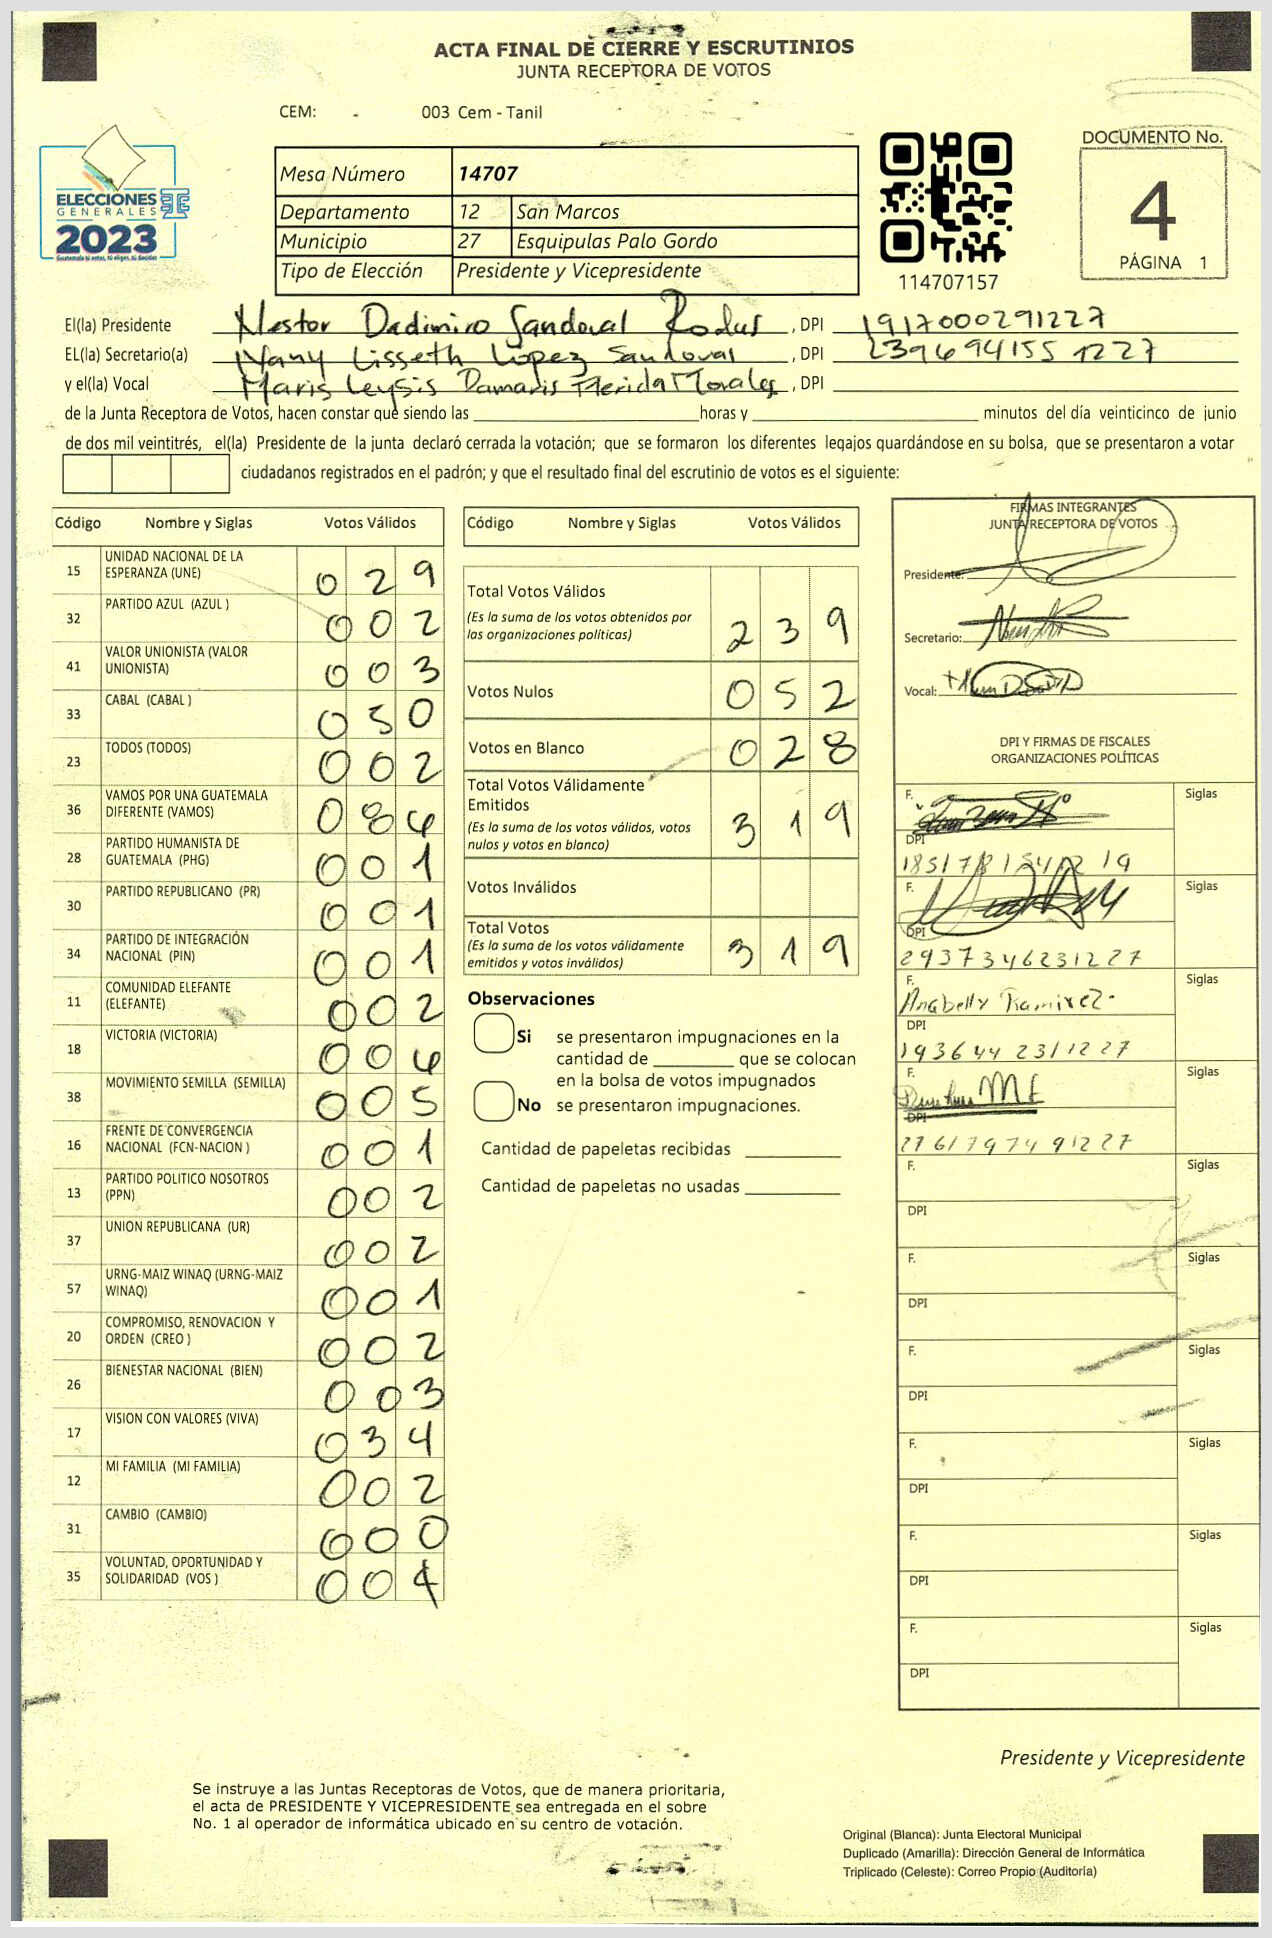 ACTA FINAL DE CIERRE Y ESCRUTINIOS
JUNTA RECEPTORA DE VOTOS
CEM: - 003 Cem - Tanil
ELECCIONES
GENERALES
2023
Guatemala tú votas, tú eliges, tú decides
Mesa Número 14707
Departamento 12 San Marcos
Municipio 27 Esquipulas Palo Gordo
Tipo de Elección Presidente y Vicepresidente
114707157
DOCUMENTO No.
4
PÁGINA 1
El(la) Presidente Nestor Dadimiro Sandoval , DPI 1917000291227
EL(la) Secretario(a) Nany Lisseth Lopez Sandoval , DPI 2396941551227
y el(la) Vocal Maris Leysis Damaris Merida Morales , DPI
de la Junta Receptora de Votos, hacen constar que siendo las horas y minutos del día veinticinco de junio
de dos mil veintitrés, el(la) Presidente de la junta declaró cerrada la votación; que se formaron los diferentes legajos quardándose en su bolsa, que se presentaron a votar
ciudadanos registrados en el padrón; y que el resultado final del escrutinio de votos es el siguiente:
Código Nombre y Siglas Votos Válidos
15 UNIDAD NACIONAL DE LA ESPERANZA (UNE) 029
32 PARTIDO AZUL (AZUL ) 002
41 VALOR UNIONISTA (VALOR UNIONISTA) 003
33 CABAL (CABAL ) 050
23 TODOS (TODOS) 002
36 VAMOS POR UNA GUATEMALA DIFERENTE (VAMOS) 084
28 PARTIDO HUMANISTA DE GUATEMALA (PHG) 001
30 PARTIDO REPUBLICANO (PR) 001
34 PARTIDO DE INTEGRACIÓN NACIONAL (PIN) 001
11 COMUNIDAD ELEFANTE (ELEFANTE) 002
18 VICTORIA (VICTORIA) 004
38 MOVIMIENTO SEMILLA (SEMILLA) 005
16 FRENTE DE CONVERGENCIA NACIONAL (FCN-NACION ) 001
13 PARTIDO POLITICO NOSOTROS (PPN) 002
37 UNION REPUBLICANA (UR) 002
57 URNG-MAIZ WINAQ (URNG-MAIZ WINAQ) 001
20 COMPROMISO, RENOVACION Y ORDEN (CREO ) 002
26 BIENESTAR NACIONAL (BIEN) 003
17 VISION CON VALORES (VIVA) 034
12 MI FAMILIA (MI FAMILIA) 002
31 CAMBIO (CAMBIO) 000
35 VOLUNTAD, OPORTUNIDAD Y SOLIDARIDAD (VOS ) 004
Código Nombre y Siglas Votos Válidos
Total Votos Válidos 239
(Es la suma de los votos obtenidos por
las organizaciones políticas)
Votos Nulos 052
Votos en Blanco 028
Total Votos Válidamente
Emitidos 319
(Es la suma de los votos válidos, votos
nulos y votos en blanco)
Votos Inválidos
Total Votos 319
(Es la suma de los votos válidamente
emitidos y votos inválidos)
Observaciones
Si se presentaron impugnaciones en la
cantidad de que se colocan
en la bolsa de votos impugnados
No se presentaron impugnaciones.
Cantidad de papeletas recibidas
Cantidad de papeletas no usadas
FIRMAS INTEGRANTES
JUNTA RECEPTORA DE VOTOS
Presidente:
Secretario:
Vocal:
DPI Y FIRMAS DE FISCALES
ORGANIZACIONES POLÍTICAS
F. Siglas
DPI
F. Siglas
DPI
2937346231227
F. Anabelly Ramirez Siglas
DPI
1936442311227
F. Siglas
DPI
2761797491227
F. Siglas
DPI
F. Siglas
DPI
F. Siglas
DPI
F. Siglas
DPI
F. Siglas
DPI
F. Siglas
DPI
Presidente y Vicepresidente
Se instruye a las Juntas Receptoras de Votos, que de manera prioritaria,
el acta de PRESIDENTE Y VICEPRESIDENTE sea entregada en el sobre
No. 1 al operador de informática ubicado en su centro de votación.
Original (Blanca): Junta Electoral Municipal
Duplicado (Amarilla): Dirección General de Informática
Triplicado (Celeste): Correo Propio (Auditoría)